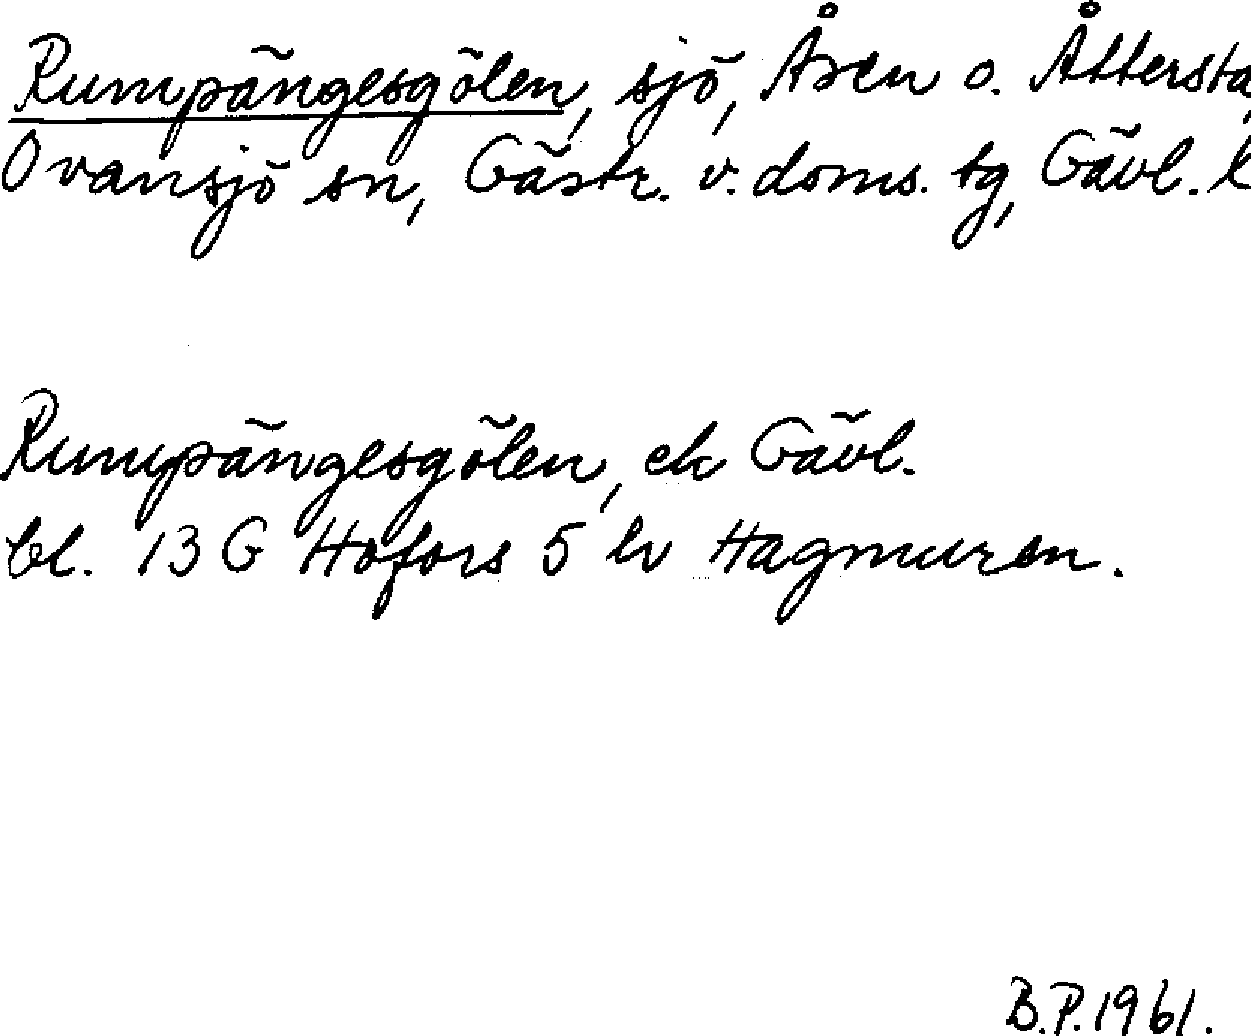 Rumpängesgölen, sjö, Åsen o. Åttersta,
Ovansjö sn, Gästr. v. doms. tg, Gävl. l
Rumpängesgölen, ek Gävl.
bl. 13 G Hofors 5 hv Hagmuren.
B.P. 1961.